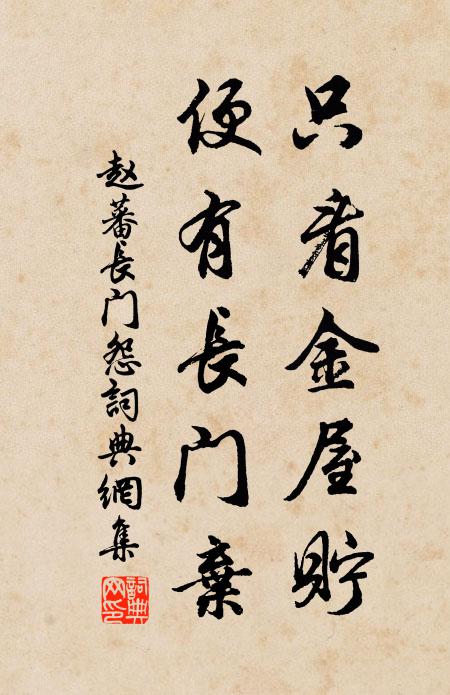 只看金屋貯
便有長门棄
赵蕃長门怨詞典網集
詞典网印